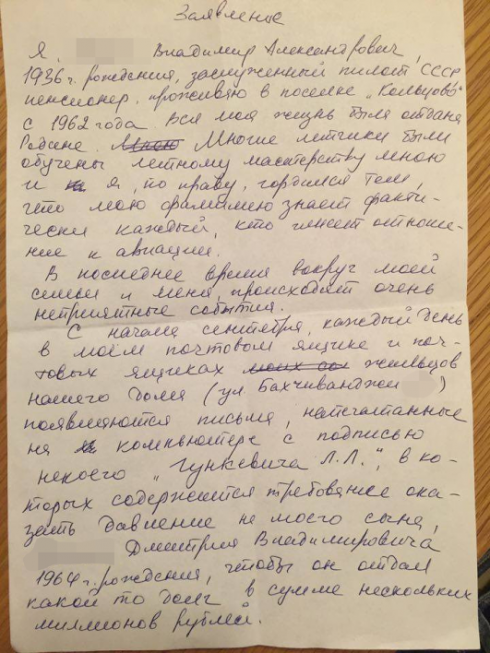 Заявление
Я, Владимир Александрович,
1936 г. рождения, заслуженный пилот СССР
пенсионер, проживаю в поселке „Кольцово"
с 1962 года Вся моя жизнь была отдана
Родине. Мною Многие летчики были
обучены летному мастерству мною
и я, по праву, гордился тем,
что мою фамилию знает факти-
чески каждый, кто имеет отноше-
ние к авиации.
В последнее время вокруг моей
семьи и меня, происходят очень
неприятные события.
С начала сентября, каждый день
в моём почтовом ящике и поч-
товых ящиках жильцов
нашего дома (ул. Бахчиванджи )
появляются письма, напечатанные
на компьютере с подписью
некоего „Гункевича Л.Л.", в ко-
торых содержится требование ока-
зать давление на моего сына,
Дмитрия Владимировича
1964 г. рождения, чтобы он отдал
какой то долг в сумме нескольких
миллионов рублей.